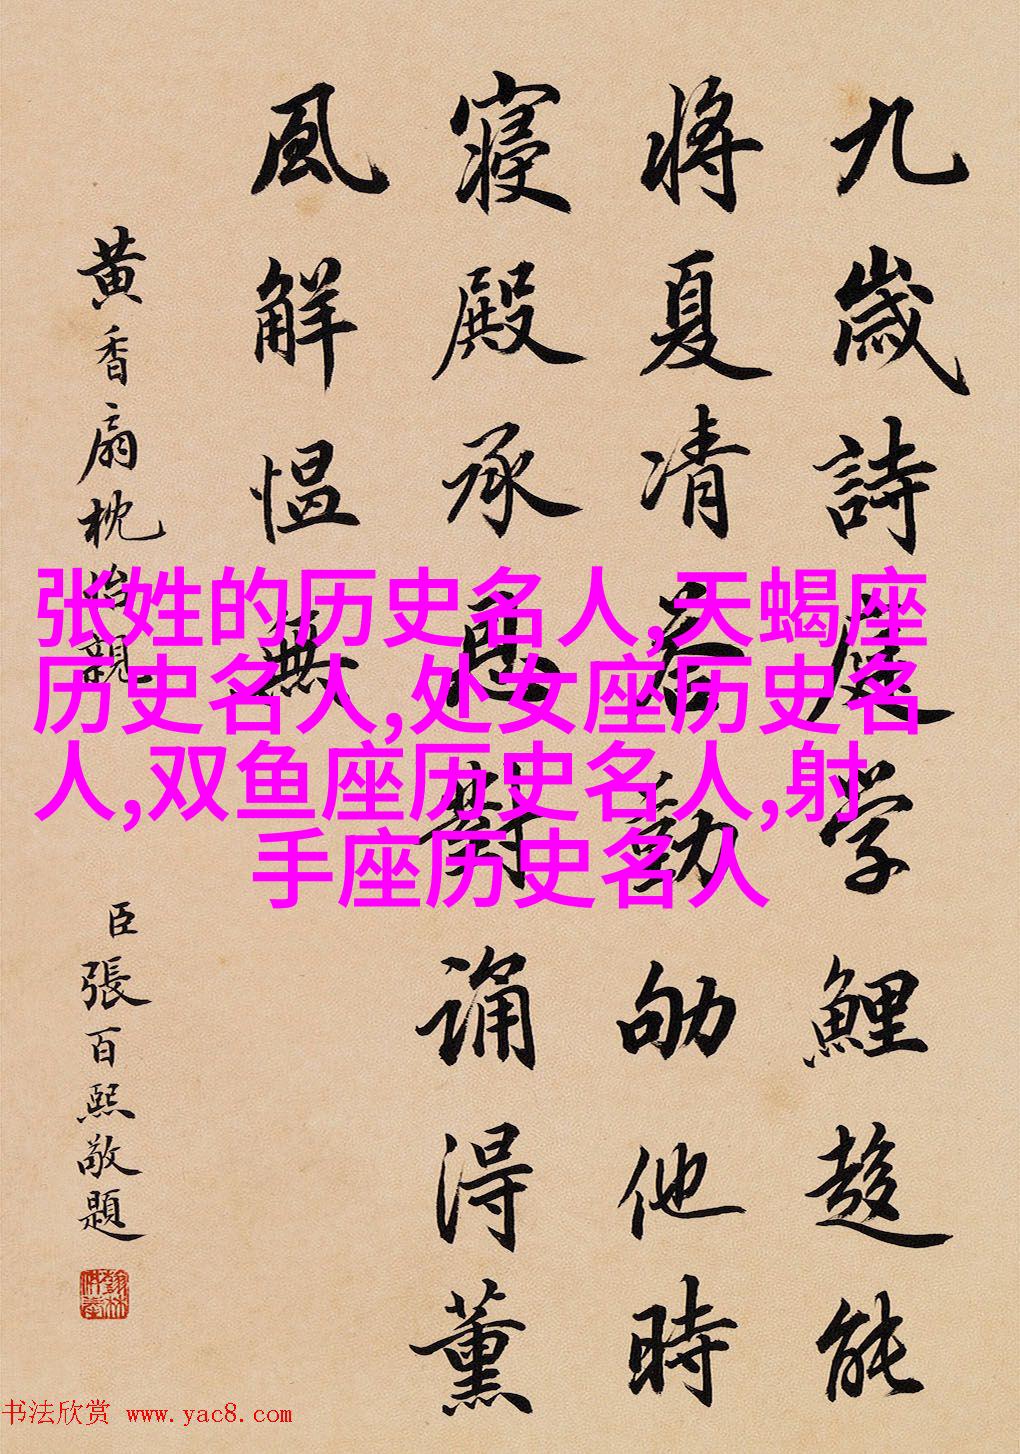 九歲詩庭学鯉趍能
將夏凊荅勤劬他時
寢殿承恩對誦得薰
風解愠無
黃香扇枕怡親
臣張百熙敬題
张姓的历史名人,天蝎座
历史名人,处女座历史名
人,双鱼座历史名人,射
手座历史名人
书法欣赏 www.yac8.com